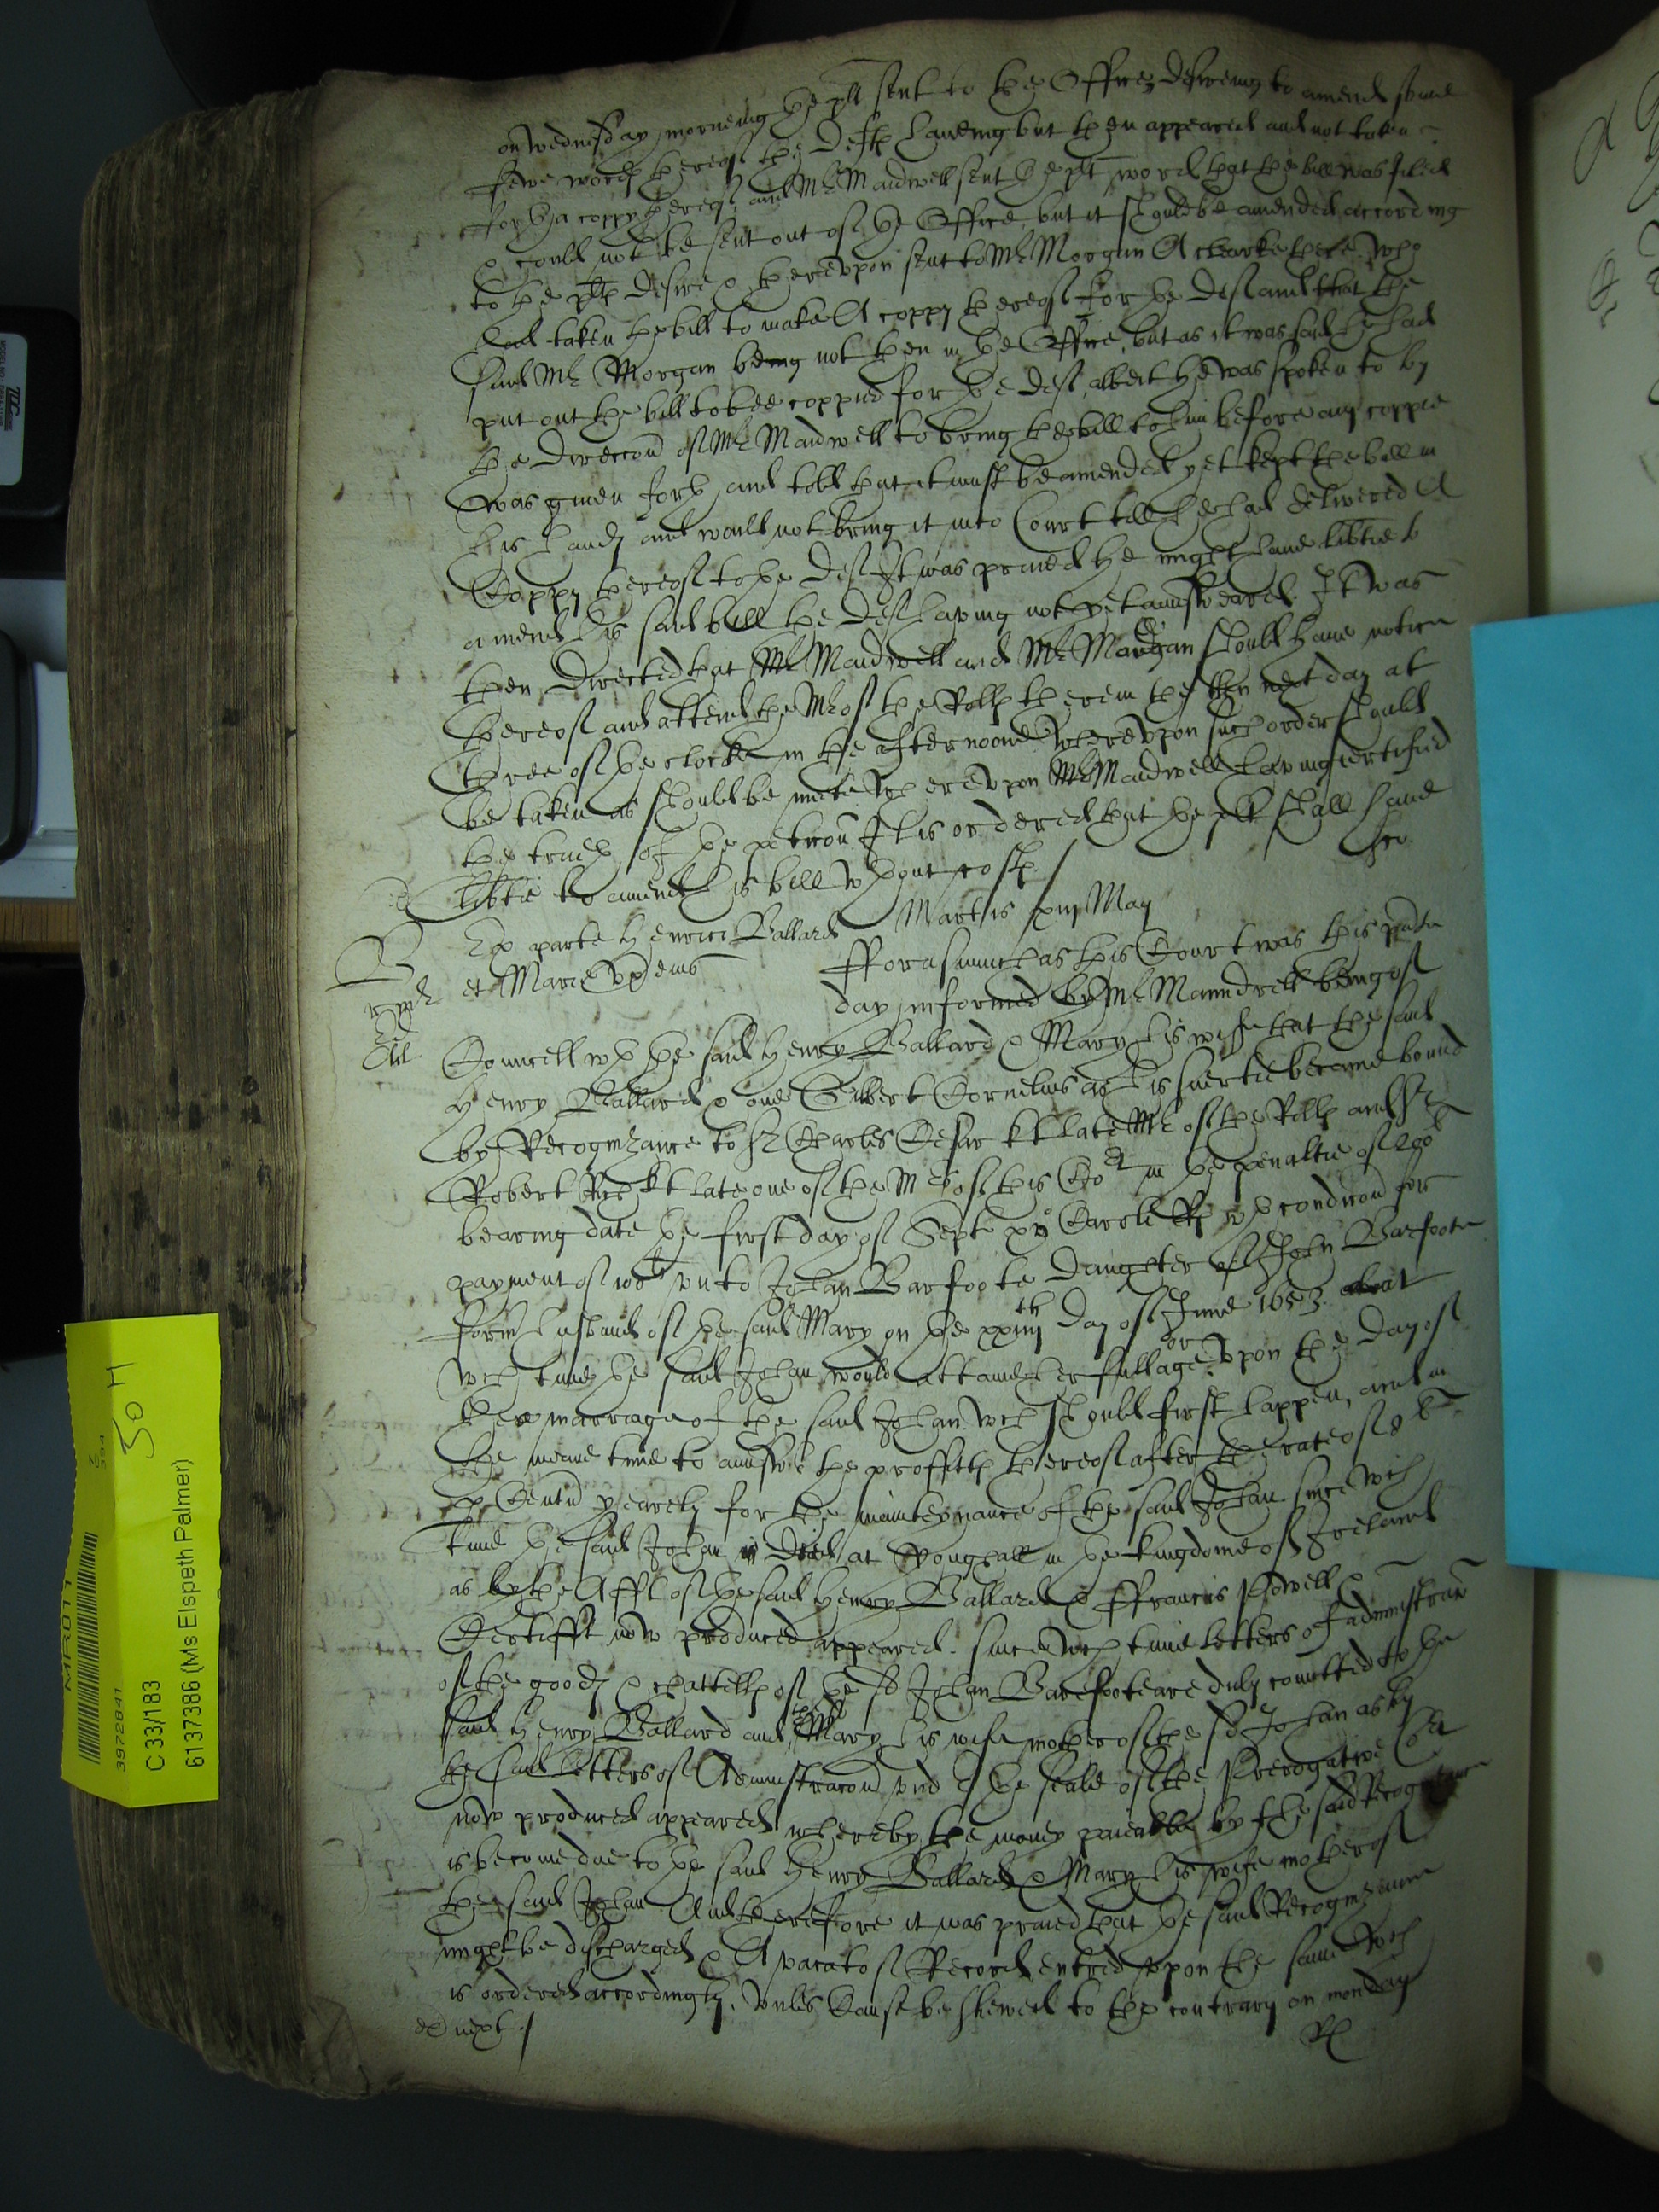 on Wednesday morneing the plt sent to the Office desireing to amend some
fewe words thereof the Defts haveing but then appeared and not taken
forth a coppy thereof, and Mr Maidwell sent the plt word that the bill was filed
& could not be sent out of the Office but it should be amended according
to the plts desire & thereupon sent to Mr Morgan A clearke there who
had taken the bill to make A coppy thereof for the Deft and that the
said Mr Morgan being not then in the Office, but as it was said he had
put out the bill to bee coppied for the Deft, albeit he was spoken to by
the direccon of Mr Maidwell to bring the bill to him before any coppie
was given forth and told that it must be amended yet kept the bill in
his hands and would not bring it into Court till he had delivered A
Coppy thereof to the Deft It was praied he might have libtie to
amend his said bill the Deft having not yet answeared. It was
then directed that Mr Maidwell and Mr Morgan should have notice
thereof and attend the Mr of the Rolls therein the then next day at
three of the clocke in the afternoone Whereupon such order should
be taken as should be meete Whereupon Mr Maidwell having certified
the truth of the peticon It is ordered that the plt shall have
libtie to amend his bill wthout costs /
Martis xiij May
Ex parte Henrici Ballard
et Marie Uxr eius
fforasmuch as this Court was this pnte
day informed by Mr Maundrell being of
Councell wth the said Henry Ballard & Mary his wife that the said
Henry Ballard & one Gilbert Cornelius as his suertie became bound
by Recognizance to Sr Charles Cesar kt late Mr of the Rolls and Sr
Robert Rich kt late one of the Mrs of this Cort in the penaltie of 200li
bearing date the first day of Sept xvo Caroli Rs wth condicon for
payment of 100li unto Johan Barfoote daughter of John Barefoote
form husband of the said Mary on the xxiiijth day of June 1653 about
wch time the said Johan would attaine her full age or upon the day of
the marriage of the said Johan wch should first happen, and in
the meane time to answere the proffitts thereof after the rate of 8li
p Centu yearely for the maintaynance of the said Johan since wch
time the said Johan died at Youghall in the kingdome of Ireland
as by the Afft of the said Henry Ballard & ffrancis Powell &
Certifft now produced appeared. since wch time letters of administracon
of the goods & chattells of the sd Johan Barefoote are duly comitted to the
said Henry Ballard and the sd Mary his wife mother of the sd Johan as by
the said letters of Administracon undr the seale of the Prerogative Cort
now produced appeared whereby the money paieable by the said Recognizance
is become due to the said Henry Ballard & Mary his wife mother of
the said Johan And therefore it was praied that the said Recognizance
might be discharged & A vacat of Record entred upon the same wch
is ordered accordingly, unles Cause be shewed to the contrary on monday
next ./
C 33/183
6137386 (Ms Elspeth Palmer)
3972841
50 H